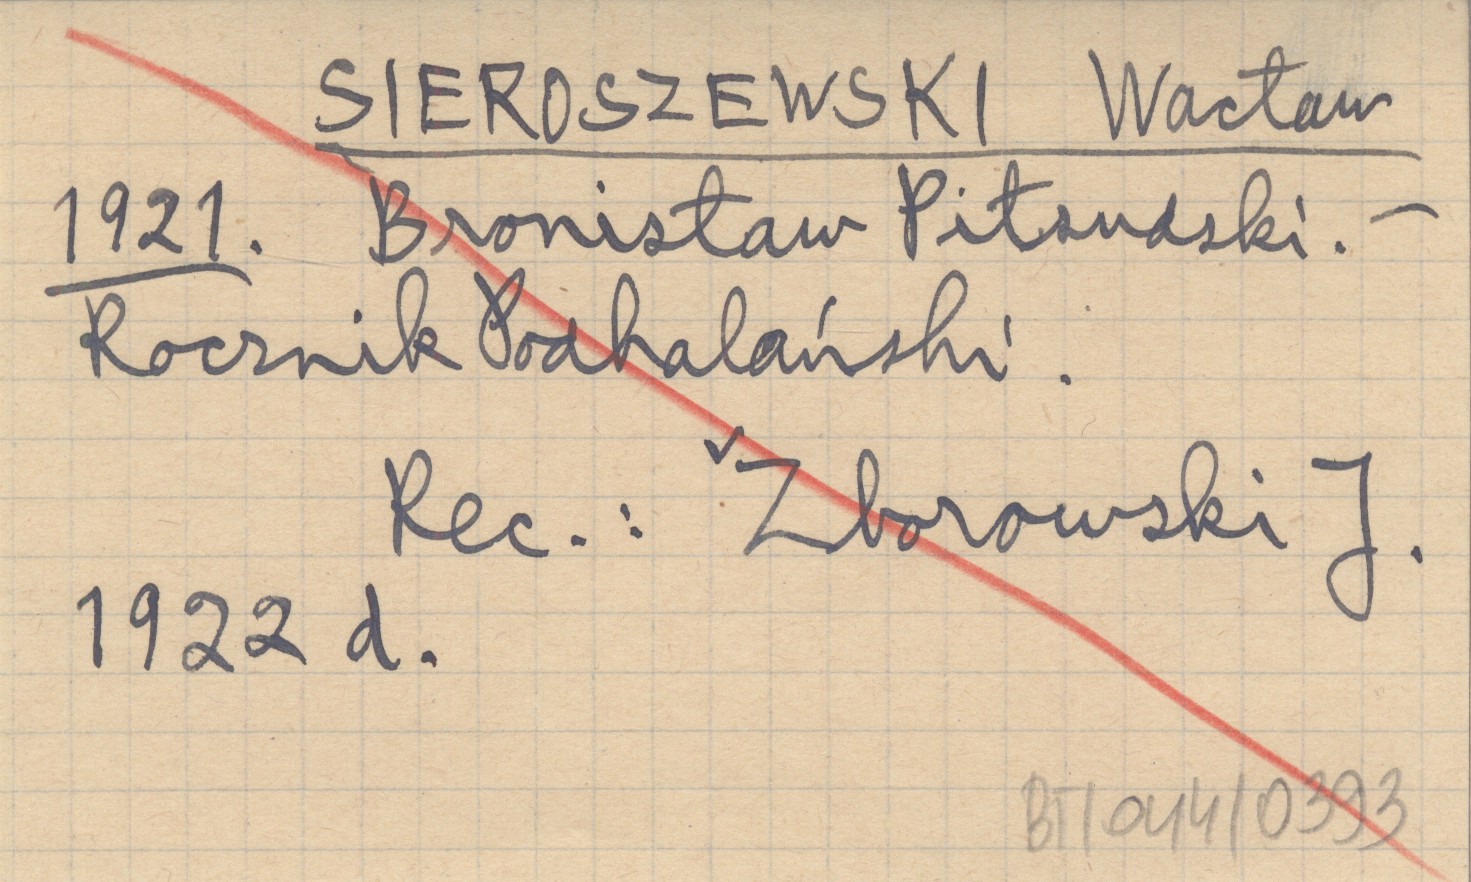 SIEROSZEWSKI Wacław
1921. Bronisław Piłsudski. –
Rocznik Podhalański.
Rec.: ✓Zborowski J.
1922 d.
BT/044/0393